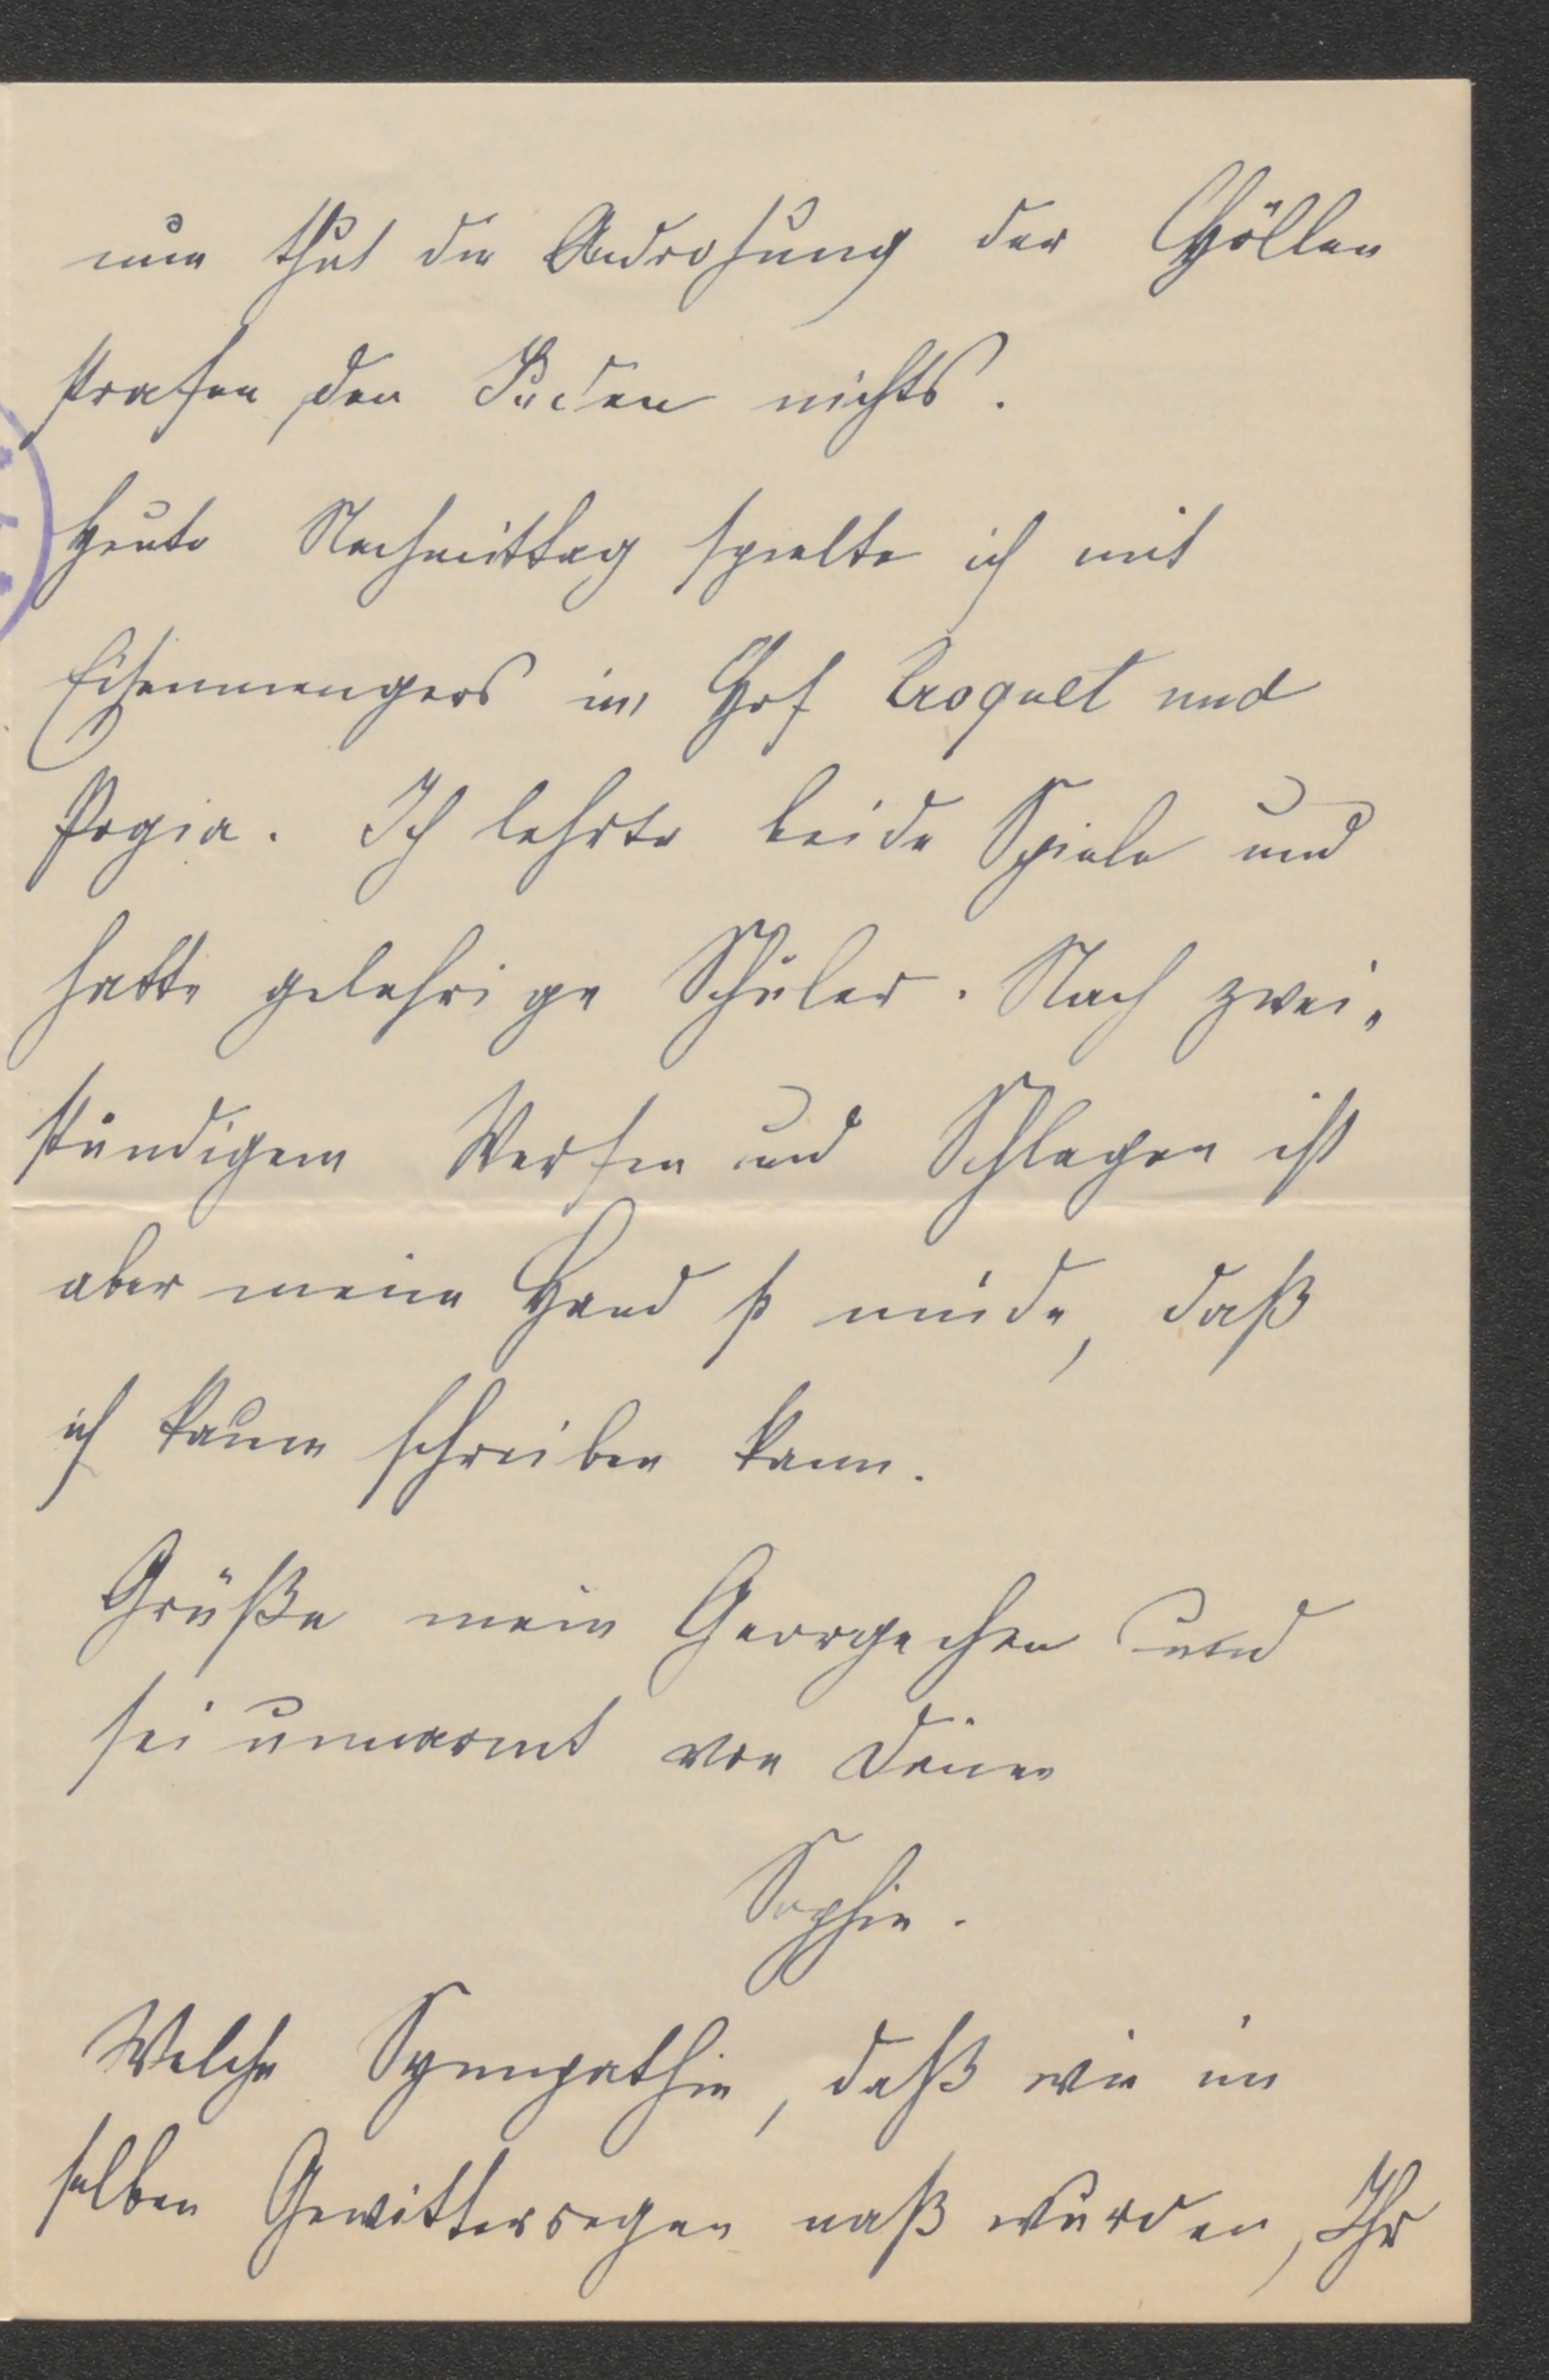 nun thut die Androhung der Höllen
strafen den Süden nichts.
Heute Nachmittag spielte ich mit
Eisenmengers im Hof Croquet und
Pogia. Ich lehrte beide Spiele und
hatte gelehrige Schüler. Nach zwei„
stündigem Werfen und Schlagen ist
aber meine Hand so müde, daß
ich kaum schreiben kann.
Grüße mein Georgechen und
sei umarmt von Deiner
Sophie.
Welche Sympathie, daß wir im
selben Gewitterregen naß wurden, Ihr